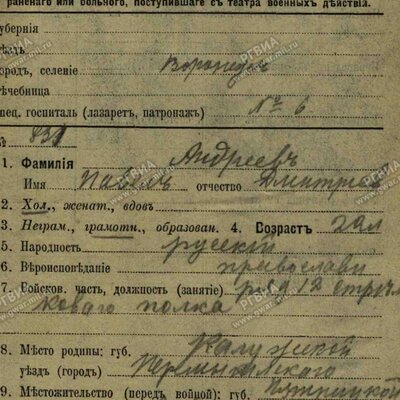 раненаго или больного, поступившаго съ театра военныхъ дѣйствій.
губернія
уѣздъ
городъ, селеніе Воронежъ
лѣчебница
спец. госпиталь (лазаретъ, патронажъ) № 6
№ 831
1. Фамилія Андреевъ
Имя Павелъ отчество Дмитріев
2. Хол., женат., вдовъ
3. Неграм., грамотн., образован. 4. Возрастъ 22 л
5. Народность русскій
6. Вѣроисповѣданіе православн
7. Войсков. часть, должность (занятіе) ряд 12 стрѣл
коваго полка
8. Мѣсто родины: губ. Калужской
уѣздъ (городъ) Перемышльскаго
9. Мѣстожительство (передъ войной): губ.
РГВИА